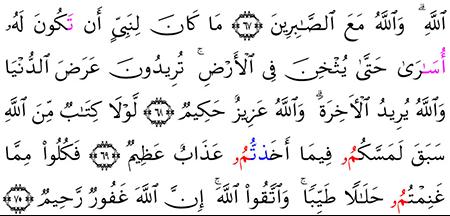 ٱللَّهِ ۗ وَٱللَّهُ مَعَ ٱلصَّـٰبِرِينَ ﴿٦٧﴾ مَا كَانَ لِنَبِىٍّ أَن تَكُونَ لَهُۥ
أُسَـٰرَىٰ حَتَّىٰ يُثْخِنَ فِى ٱلْأَرْضِ ۚ تُرِيدُونَ عَرَضَ ٱلدُّنْيَا
وَٱللَّهُ يُرِيدُ ٱلْأَخِرَةَ ۗ وَٱللَّهُ عَزِيزٌ حَكِيمٌ ﴿٦٨﴾ لَّوْلَا كِتَـٰبٌ مِّنَ ٱللَّهِ
سَبَقَ لَمَسَّكُمُۥ فِيمَا أَخَذتُّمُۥ عَذَابٌ عَظِيمٌ ﴿٦٩﴾ فَكُلُوا۟ مِمَّا
غَنِمْتُمُۥ حَلَـٰلًا طَيِّبًا ۚ وَٱتَّقُوا۟ ٱللَّهَ ۚ إِنَّ ٱللَّهَ غَفُورٌ رَّحِيمٌ ﴿٧٠﴾